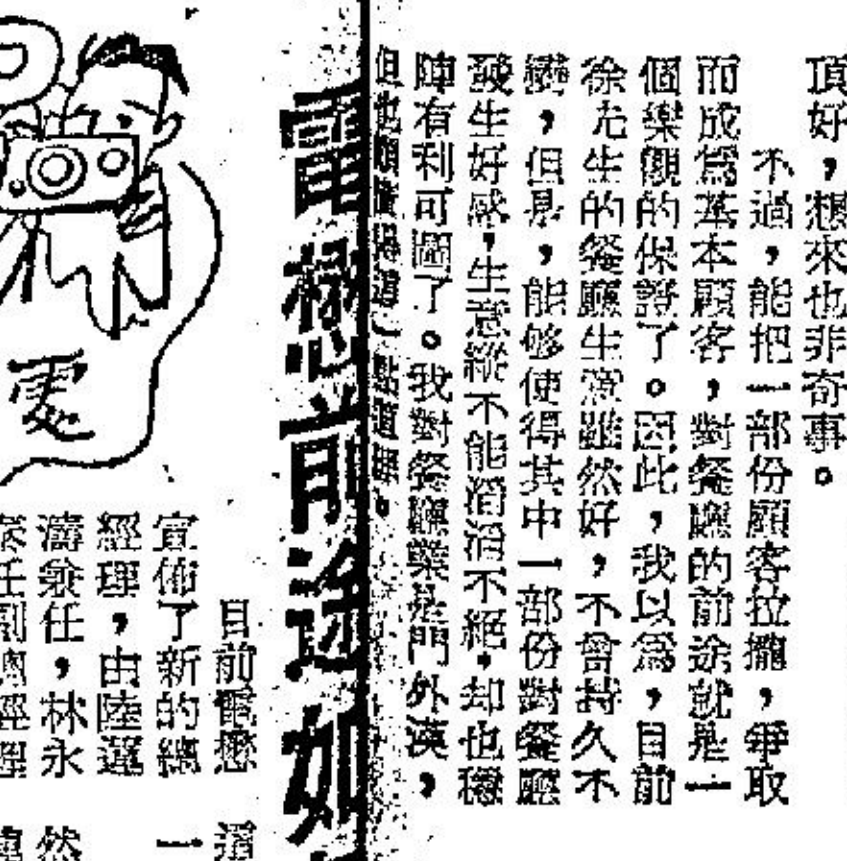 頂好，想來也非奇事。
不過，能把一部份顧客拉攏，爭取
而成爲基本顧客，對餐廳的前途就是一
個樂觀的保證了。因此，我以爲，目前
徐允生的餐廳生意雖然好，不會持久不
變，但是，能够使得其中一部份對餐廳
發生好感，生意縱不能滔滔不絕，却也穩
陣有利可圖了。我對餐廳業是門外漢，
但也頗懂得這一點道理。
電懋前途如
目前電懋
宣佈了新的總
經理，由陸運
濤兼任，林永
泰任副總經理
電
一
然